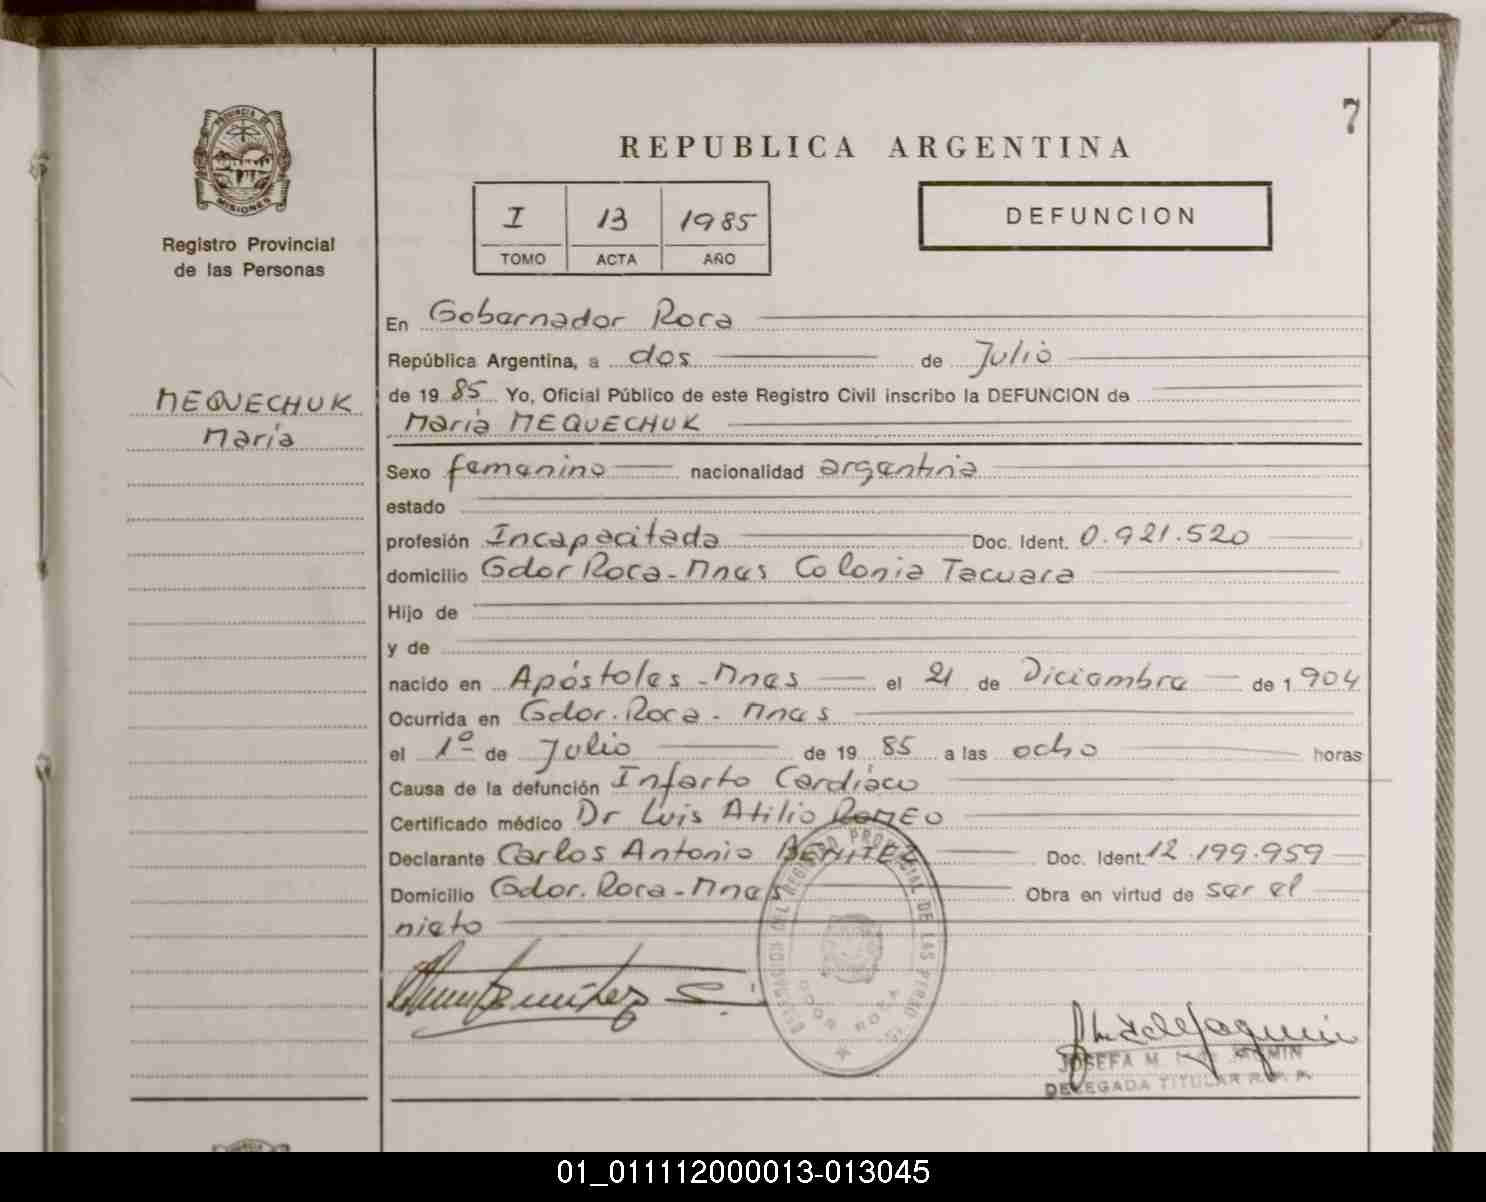 7
PROVINCIA DE
MISIONES
Registro Provincial
de las Personas
REPUBLICA ARGENTINA
I 13 1985
TOMO ACTA AÑO
DEFUNCION
MEQUECHUK
María
En Gobernador Roca
República Argentina, a dos de Julio
de 19 85 Yo, Oficial Público de este Registro Civil inscribo la DEFUNCION de
María MEQUECHUK
Sexo femenino nacionalidad argentina
estado
profesión Incapacitada Doc. Ident. 0.921.520
domicilio Gdor Roca-Mnes Colonia Tacuara
Hijo de
y de
nacido en Apóstoles-Mnes el 21 de Diciembre de 1 904
Ocurrida en Gdor. Roca - Mnes
el 1º de Julio de 19 85 a las ocho horas
Causa de la defunción Infarto Cardíaco
Certificado médico Dr Luis Atilio ROMEO
Declarante Carlos Antonio BENITEZ Doc. Ident. 12.199.959
Domicilio Gdor. Roca-Mnes Obra en virtud de ser el
nieto
DEL REGISTRO PROVINCIAL DE LAS PERSO
GDOR ROCA
JOSEFA M.
DELEGADA TITULAR R. P. P.
01_011112000013-013045